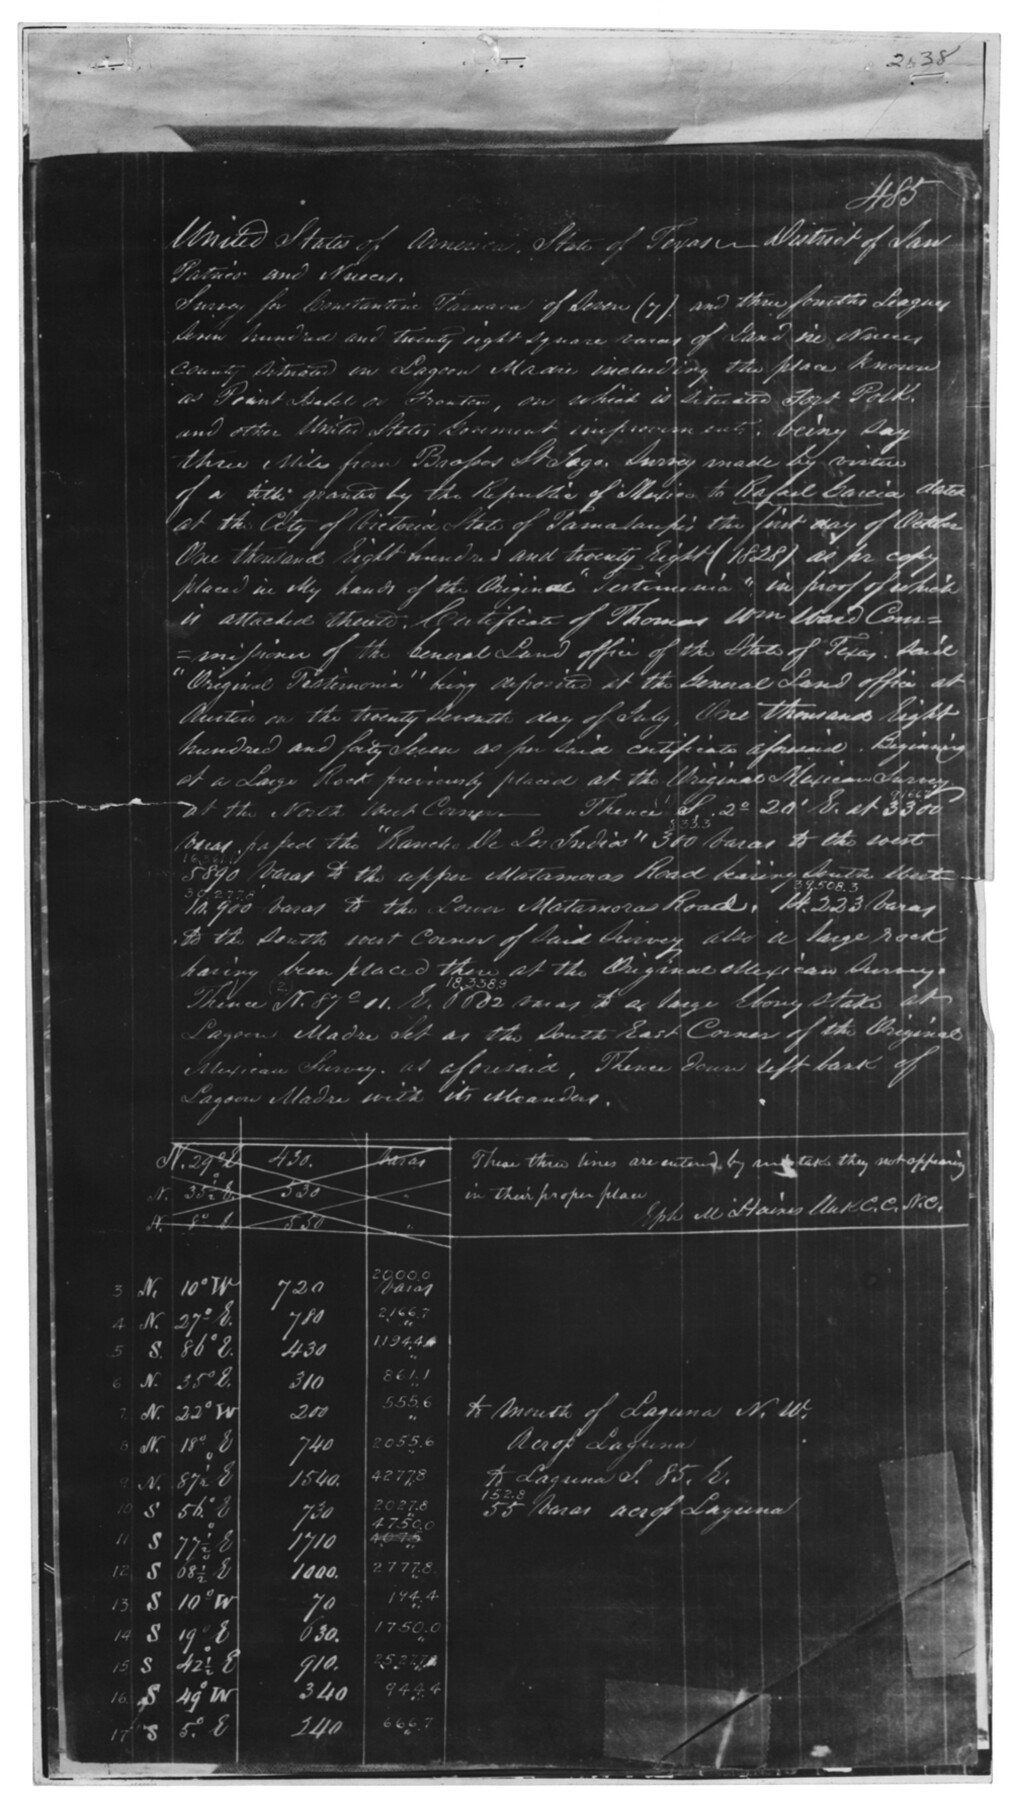 2638
485
United States of America, State of Texas District of San
Patricio and Nueces.
Survey for Constantine of Seven (7) and three fourths Leagues
Seven hundred and twenty eight square varas of Land in Nueces
county situated on Lagoon Madre including the place known
as Point Isabel or Fronton, on which is situated Fort Polk.
and other United States Goverment improvements. being say
three Miles from Brasos St Iago. Survey made by virtue
of a title granted by the Republic of Mexico to Rafael Garcia dated
at the City of Victoria State of Tamalaupis the first day of October
One thousand Eight hundred and twenty Eight (1828) as pr copy
placed in My hands of the Original "Testimonia" in proof of which
is attached thereto. Certificate of Thomas Wm Ward Com=
=missioner of the General Land office of the State of Texas. Said
"Original Testimonia" being deposited at the General Land office at
Austin on the twenty Seventh day of July, One thousand Eight
hundred and forty Seven as per said certificate aforesaid. Beginning
at a Large Rock previously placed at the Original Mexican Survey
at the North West Corner Thence (1) S. 2° 20' E. at 3300
9166.7
833.3
varas passed the "Rancho De Los Indios" 300 varas to the west
16,361.1
5890 varas to the upper Matamoros Road bearing South West
30,277.8 39,508.3
10.900 varas to the Lower Matamoros Road. 14.223 varas
to the South west Corner of Said Survey also a large rock
having been placed there at the Original Mexican Survey.
(2) 18,338.9
Thence N. 87° 11. E. 6602 varas to a large Ebony stake at
Lagoon Madre set as the South East Corner of the Original
Mexican Survey. as aforesaid, Thence down left bank of
Lagoon Madre with its Meanders.
N. 29° E 430. varas
N. 35½° E 530 "
N. 9° E 550 "
These three lines are entered by mistake they not appearing
in their proper place
Eph M Haines Clerk C.C. N.C.
3 N. 10° W 720 2000.0 varas
4 N. 27° E. 780 2,166.7 "
5 S. 86° E. 430 1194.4 "
6 N. 35° E. 310 861.1
7 N. 22° W 200 555.6 " to Mouth of Laguna N. W.
8 N. 18° E 740 2055.6 " Across Laguna
9 N. 87½° E 1540. 4277.8 to Laguna S. 85. E.
10 S 56° E 730 2027.8 152.8 55 Varas across Laguna
11 S 77½° E 1710 4750.0
12 S 68½ E 1000. 2777.8
13 S 10° W 70 194.4
14 S 19° E 630. 1750.0
15 S 42½ E 910. 2527.7
16 S 49° W 340 944.4
17 S 5° E 240 666.7